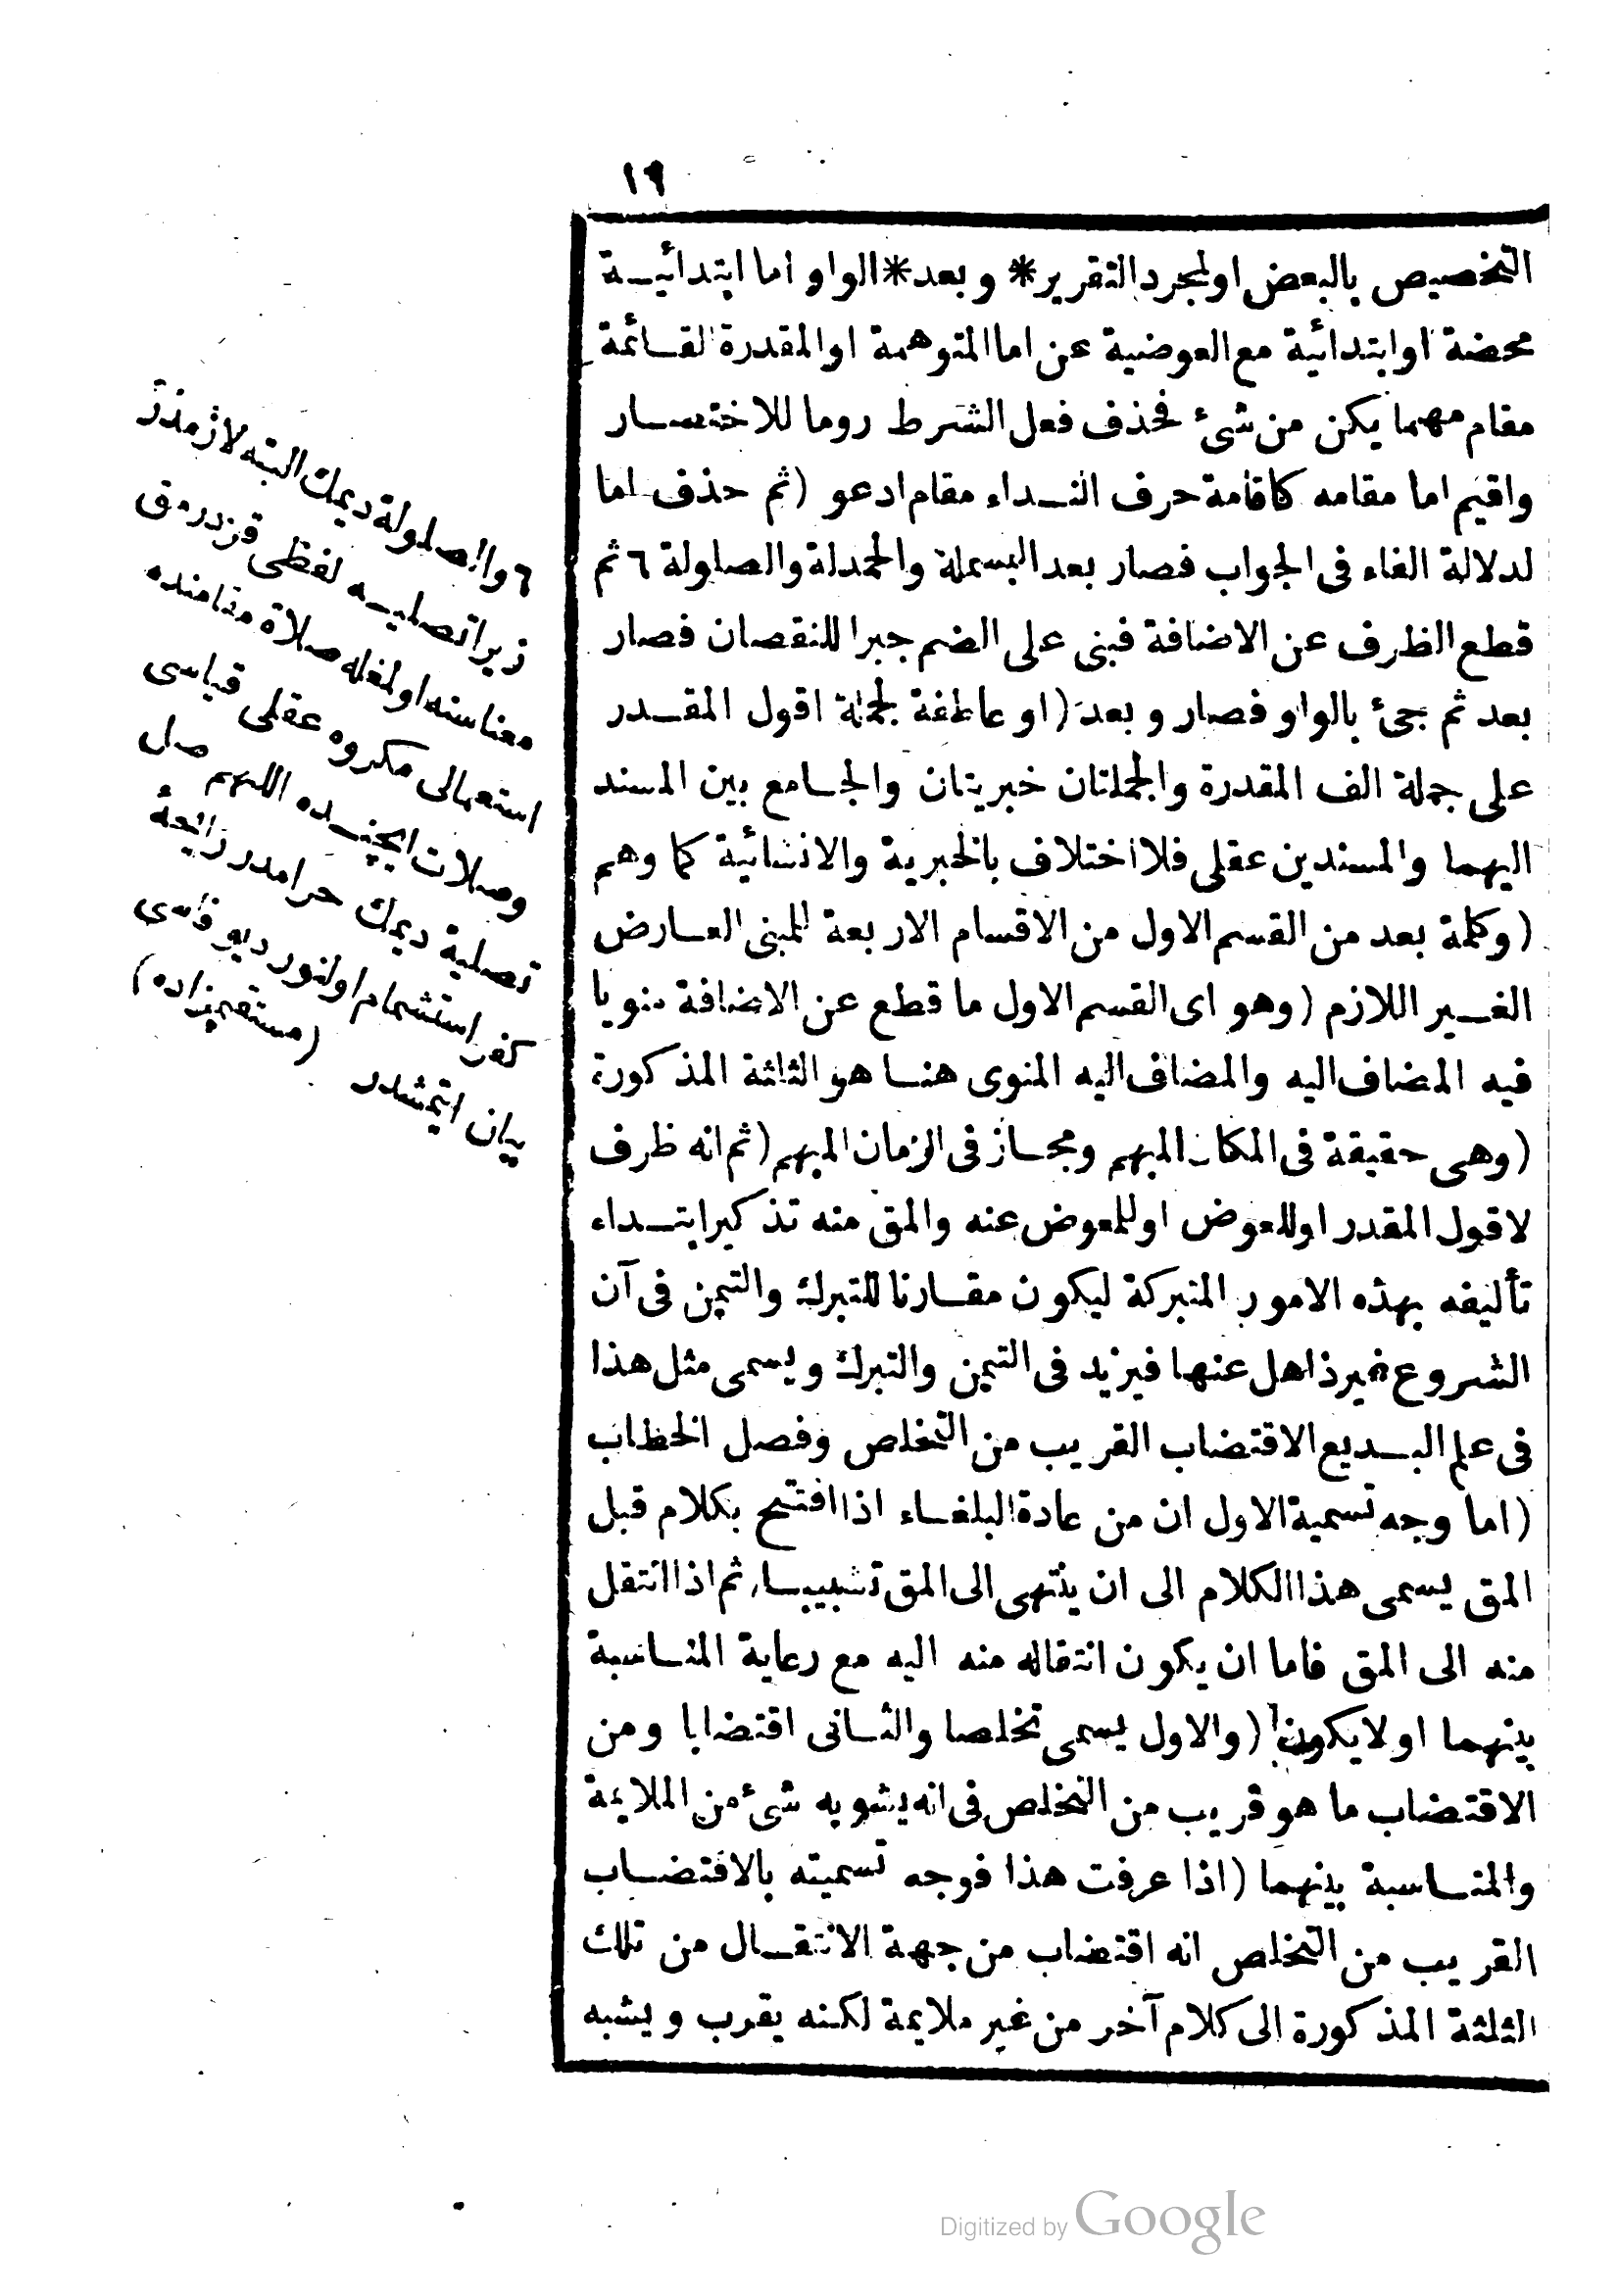 ١٩
التخصيص بالبعض اولمجرد التقرير * وبعد * الواو اما ابتدائيــة
محضة او ابتدائية مع العوضية عن اما المتوهمة او المقدرة القــائمة
مقام مهما يكن من شئ فحذف فعل الشرط روما للاختصــار
واقيم اما مقامه كاقامة حرف النــداء مقام ادعو (ثم حذف اما
لدلالة الفاء فى الجواب فصار بعد البسملة والحمدلة والصلولة ٦ ثم
قطع الظرف عن الاضافة فبنى على الضم جبرا للنقصان فصار
بعد ثم جئ بالواو فصار وبعد (او عاطفة لجملة اقول المقــدر
على جملة الف المقدرة والجملتان خبريتان والجــامع بين المسند
اليهما والمسندين عقلى فلا اختلاف بالخبرية والانشائية كما وهم
(وكلمة بعد من القسم الاول من الاقسام الاربعة للمبنى العــارض
الغــير اللازم (وهو اى القسم الاول ما قطع عن الاضافة منويا
فيه المضاف اليه والمضاف اليه المنوى هنــا هو الثلثة المذكورة
(وهى حقيقة فى المكان المبهم ومجــاز فى الزمان المبهم (ثم انه ظرف
لاقول المقدر اوللعوض اوللمعوض عنه والمق منه تذكير ابتــداء
تأليفه بهذه الامور المتبركة ليكون مقــارنا للتبرك والتيمن فى آن
الشروع غير ذاهل عنها فيزيد فى التيمن والتبرك ويسمى مثل هذا
فى علم البــديع الاقتضاب القريب من التخلص وفصل الخطاب
(اما وجه تسمية الاول ان من عادة البلغــاء اذا افتتح بكلام قبل
المق يسمى هذا الكلام الى ان ينتهى الى المق تشبيبــا، ثم اذا انتقل
منه الى المق فاما ان يكون انتقاله منه اليه مع رعاية المنــاسبة
بينهما اولا يكون (والاول يسمى تخلصا والثــانى اقتضابا ومن
الاقتضاب ما هو قريب من التخلص فى انه يشوبه شئ من الملايمة
والمنــاسبة بينهما (اذا عرفت هذا فوجه تسميته بالاقتضــاب
القريب من التخلص انه اقتضاب من جهة الانتقــال من تلك
الثلثة المذكورة الى كلام آخر من غير ملايمة لكنه يقرب ويشبه
٦ والصلولة ديمك البته لازمدر
زيرا تصليــه لفظى قزدرمق
معناسنه اولمغله صلاة مقامنده
استعمالى مكروه عقلى قياسى
وصلات ايچنــده اللهم صل
تصلية ديمك حرامدر رائحۀ
كفر استشمام اولنور ديو فاسى
بيان ايتمشدر (مستقيمزاده)
Digitized by Google